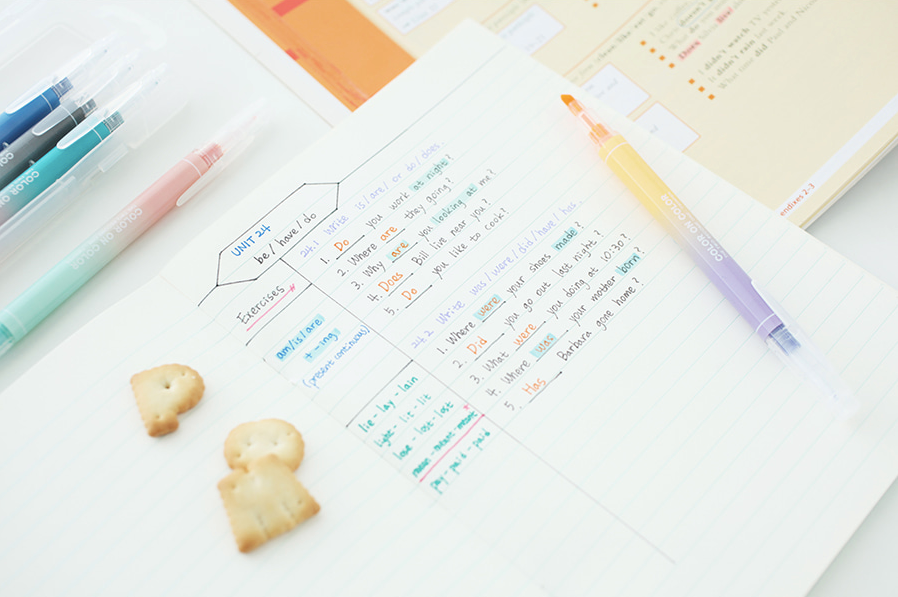 UNIT 24
be / have / do
Exercises
am/is/are
+ -ing
(present continuous)
lie - lay - lain
light - lit - lit
lose - lost - lost
mean - meant - meant
pay - paid - paid
24.1 Write is/are/ or do/does
1. Do you work at night?
2. Where are they going?
3. Why are you looking at me?
4. Does Bill live near you?
5. Do you like to cook?
24.2 Write was/were/did/have/has.
1. Where were your shoes made?
2. Did you go out last night?
3. What were you doing at 10:30?
4. Where was your mother born?
5. Has Barbara gone home?
COLOR ON COLOR
COLOR ON COLOR
COLOR ON
I didn't watch TV
It didn't rain last week
What time did Paul and
endixes 2-3